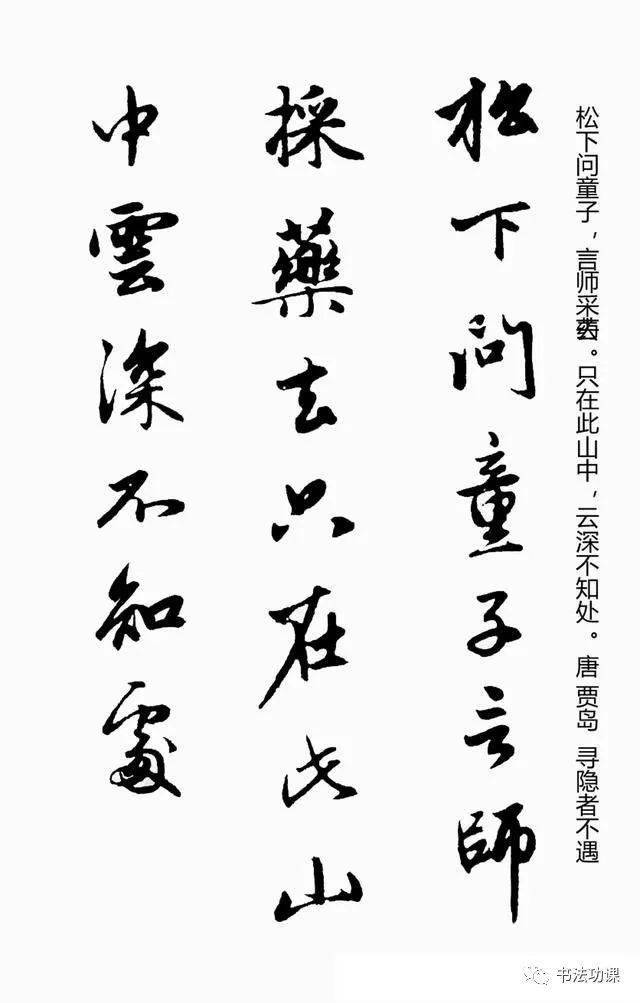 松下问童子，言师采药去。只在此山中，云深不知处。 唐 贾岛 寻隐者不遇
松下问童子言師
採藥去只在此山
中雲深不知處
书法功课